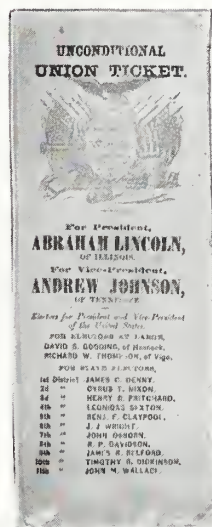 UNCONDITIONAL
UNION TICKET.
For President,
ABRAHAM LINCOLN,
OF ILLINOIS.
For Vice-President,
ANDREW JOHNSON,
OF TENNESSEE
Electors for President and Vice-President
of the United States.
FOR ELECTORS AT LARGE,
DAVID S. GOODING, of Hancock,
RICHARD W. THOMPSON, of Vigo.
FOR STATE ELECTORS,
1st District JAMES C. DENNY.
2d " CYRUS T. NIXON.
3d " HENRY R. PRITCHARD.
4th " LEONIDAS SEXTON.
5th " BENJ. F. CLAYPOOL.
6th " J. J. WRIGHT.
7th " JOHN OSBORN.
8th " R. P. DAVIDSON.
9th " JAMES B. BELFORD.
10th " TIMOTHY R. DICKINSON.
11th " JOHN M. WALLACE.